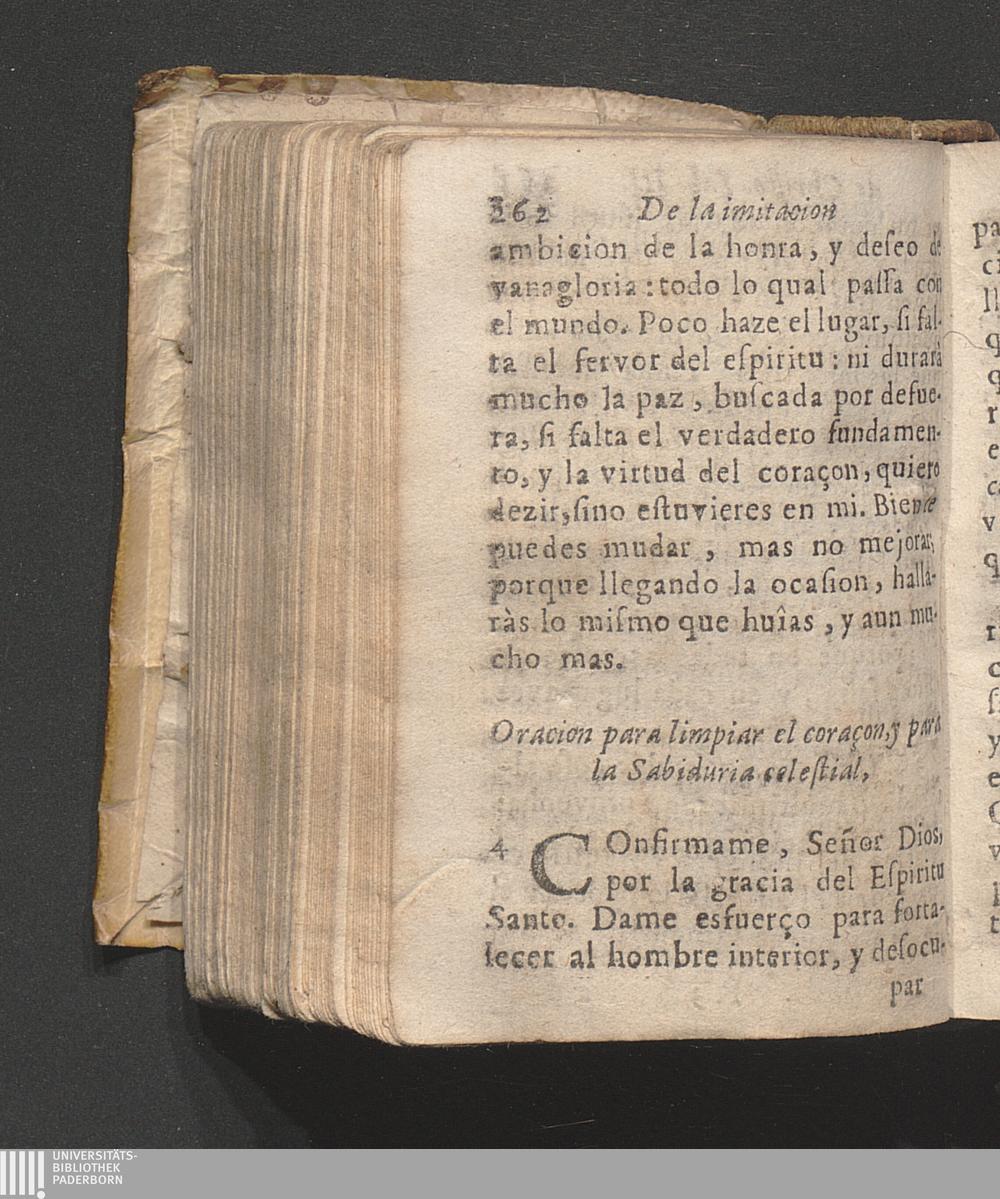 262 De la imitacion
ambicion de la honra, y deſeo de
vanagloria: todo lo qual paſſa con
el mundo. Poco haze el lugar, ſi fal-
ta el fervor del eſpiritu: ni durarà
mucho la paz, buſcada por defue-
ra, ſi falta el verdadero fundamen-
to, y la virtud del coraçon, quiero
dezir, ſino eſtuvieres en mi. Bien te
puedes mudar, mas no mejorar,
porque llegando la ocaſion, halla-
ràs lo miſmo que huîas, y aun mu-
cho mas.
Oracion para limpiar el coraçon, y para
la Sabiduria celeſtial,
4 COnfirmame, Señor Dios,
por la gracia del Eſpiritu
Santo. Dame esfuerço para forta-
lecer al hombre interior, y deſocu-
par
UNIVERSITÄTS-
BIBLIOTHEK
PADERBORN